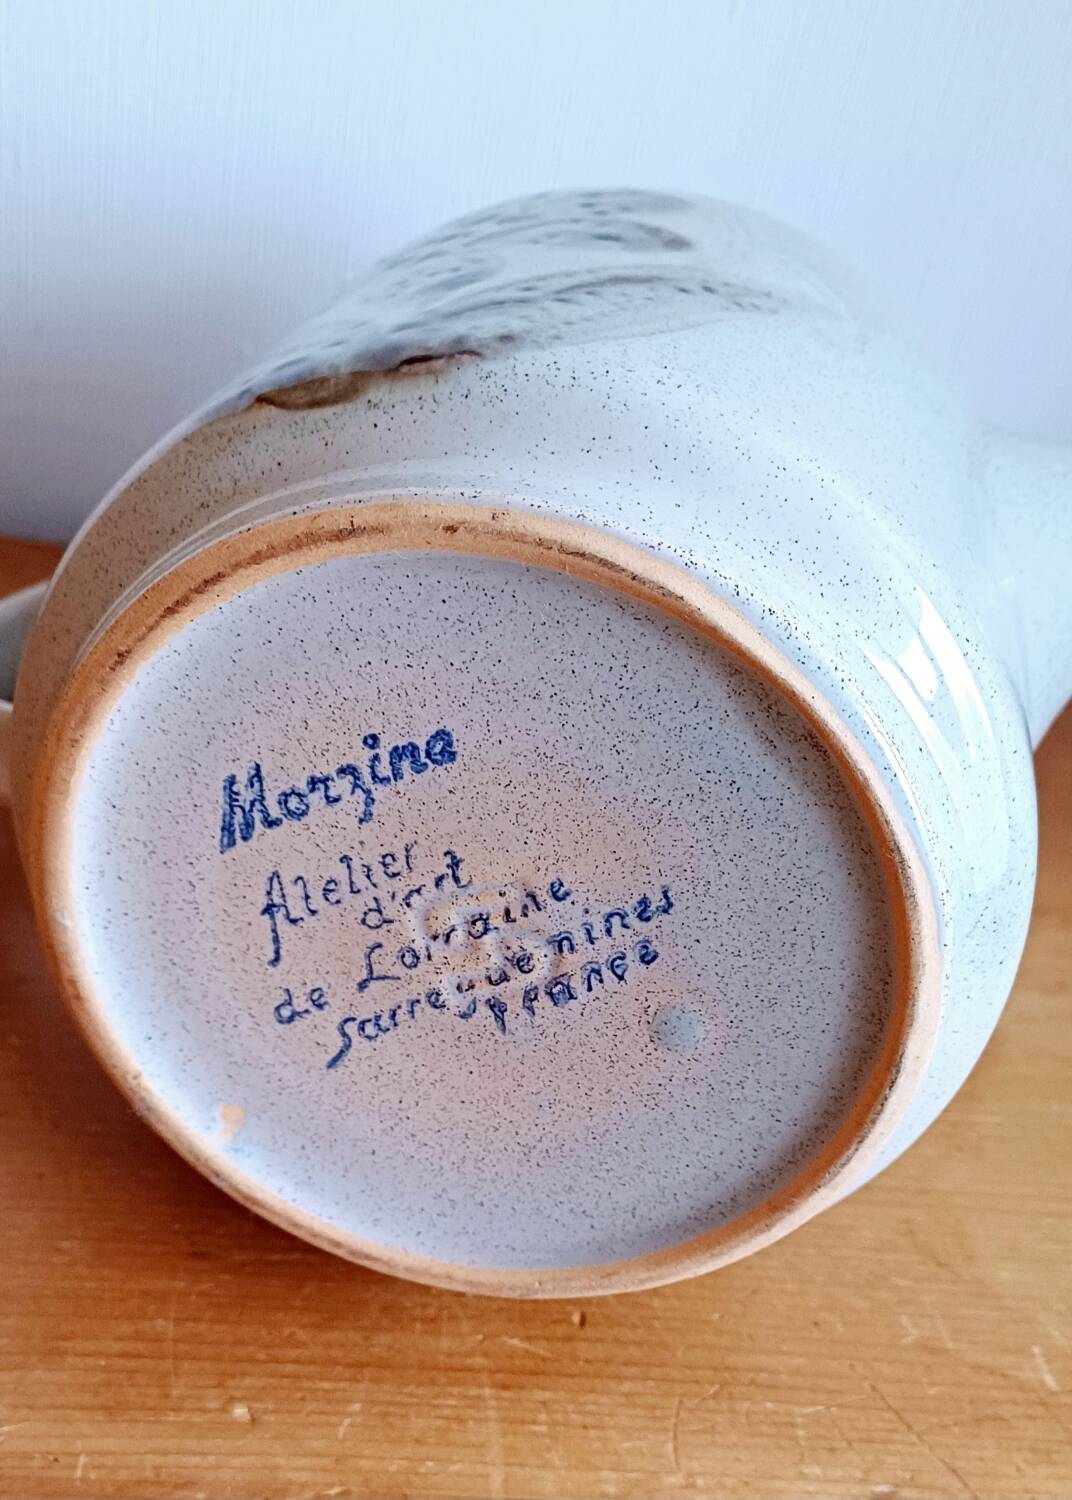 Morzine
Atelier
d'art
de Lorraine
Sarreguemines
FRANCE